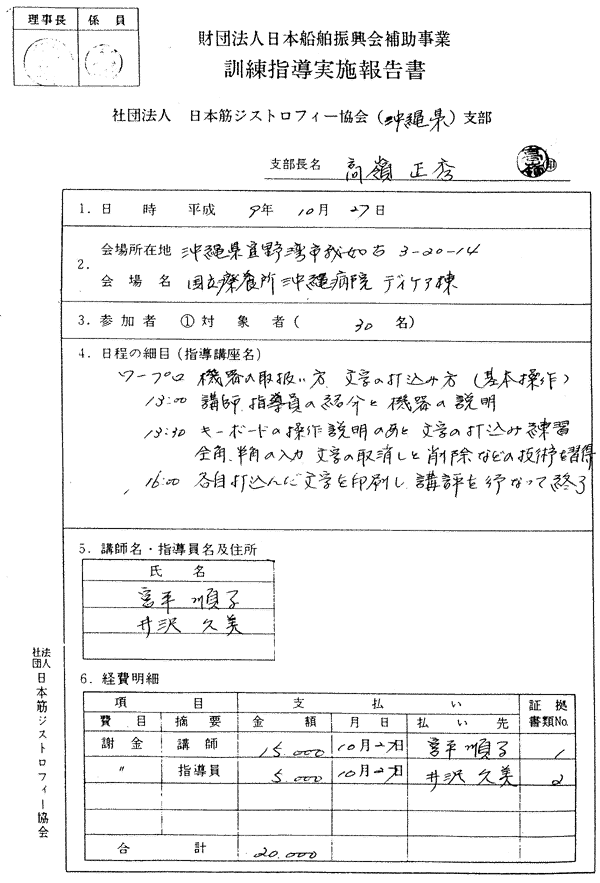 理事長 係員
財団法人日本船舶振興会補助事業
訓練指導実施報告書
社団法人 日本筋ジストロフィー協会(沖縄県)支部
支部長名 高嶺 正秀
1.日 時 平成 9年 10月 27日
2.会場所在地 沖縄県宜野湾市我如古 3-20-14
会場名 国立療養所沖縄病院 デイケア棟
3.参加者 ①対象者( 30名)
4.日程の細目(指導講座名)
ワープロ 機器の取扱い方 文字の打込み方(基本操作)
13:00 講師、指導員の紹介と機器の説明
13:30 キーボードの操作説明のあと文字の打込み練習
全角、半角の入力 文字の取消しと削除などの技術を習得
16:00 各自打込んだ文字を印刷し、講評を行なって終了
5.講師名・指導員名及住所
氏 名
宮平 順子
井沢 久美
6.経費明細
項 目 支 払 い 証 拠
費 目 摘 要 金 額 月 日 払い先 書類No.
謝金 講師 15.000 10月27日 宮平 順子 1
〃 指導員 5.000 10月27日 井沢 久美 2
合 計 20.000
社団法人 日本筋ジストロフィー協会